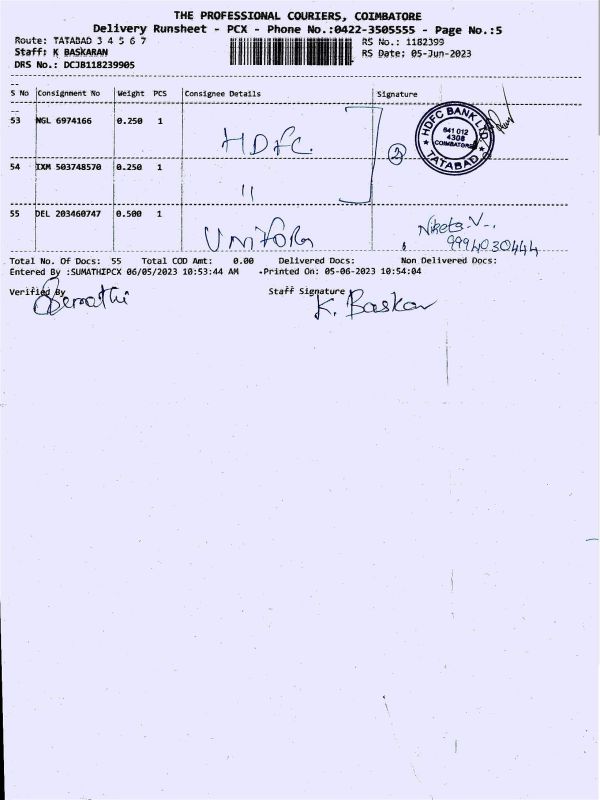 THE PROFESSIONAL COURIERS, COIMBATORE
Delivery Runsheet - PCX - Phone No.:0422-3505555 - Page No.:5
Route: TATABAD 3 4 5 6 7
RS No.: 1182399
Staff: K BASKARAN
RS Date: 05-Jun-2023
DRS No.: DCJB118239905
S No Consignment No Weight PCS Consignee Details Signature
53 NGL 6974166 0.250 1 HDFC
HDFC BANK LTD
641 012
4308
COIMBATORE
TATABAD
2
54 IXM 503748570 0.250 1 "
55 DEL 203460747 0.500 1
Niketa.V
9994030444
Total No. Of Docs: 55 Total COD Amt: 0.00 Delivered Docs: Non Delivered Docs:
Entered By :SUMATHIPCX 06/05/2023 10:53:44 AM Printed On: 05-06-2023 10:54:04
Verified By Staff Signature
Sumathi K. Baskar